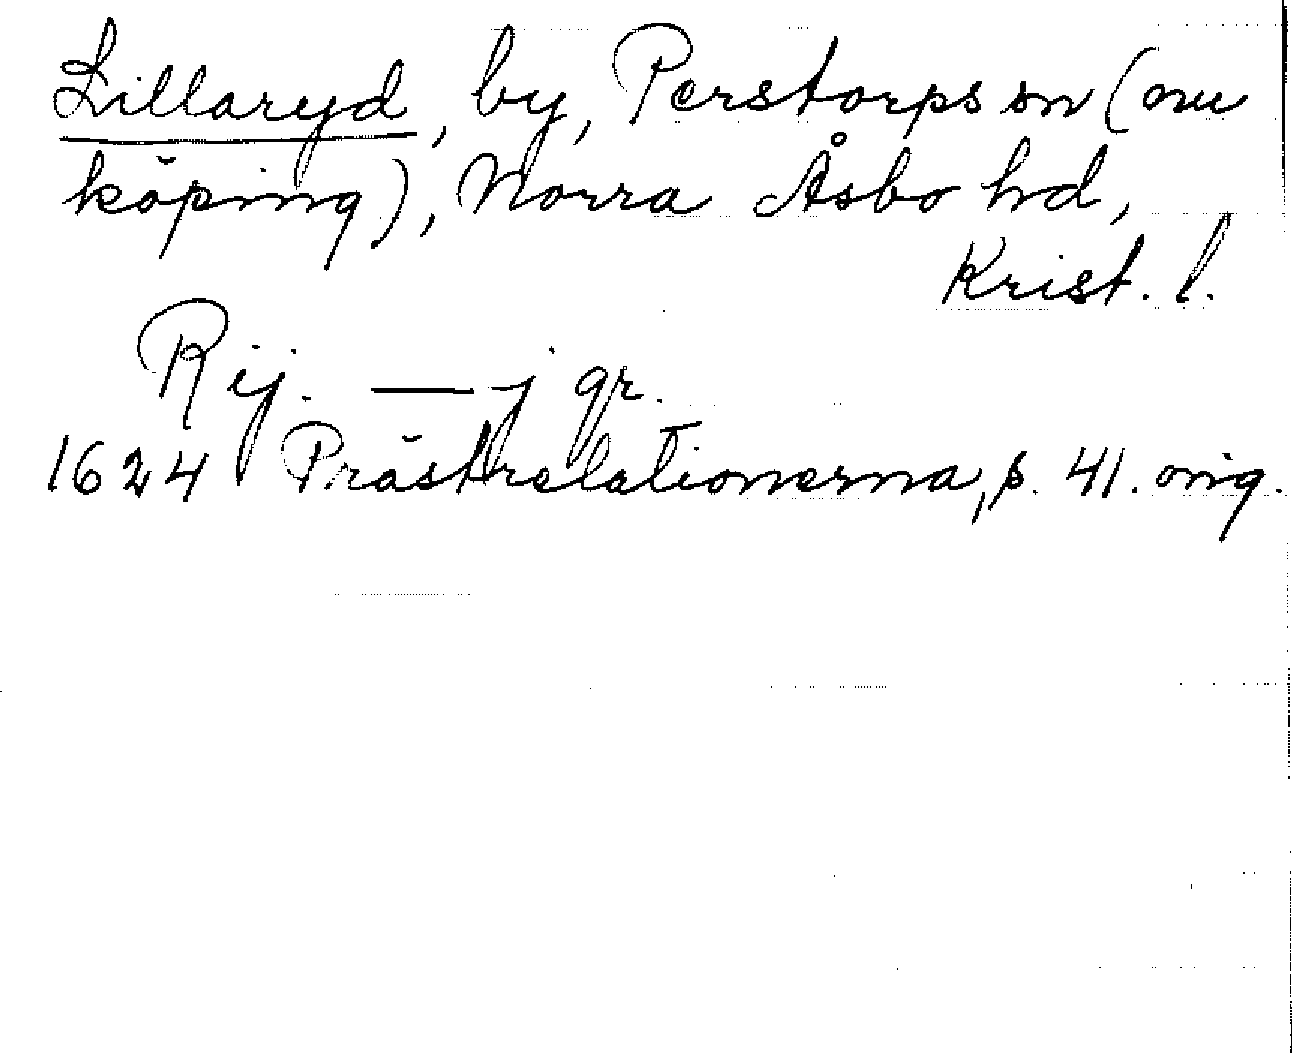 Lillaryd, by, Perstorps sn (nu
köping), Norra Åsbo hd,
Krist. l.
Rij. — j gr.
1624 Prästrelationerna, s. 41. orig.